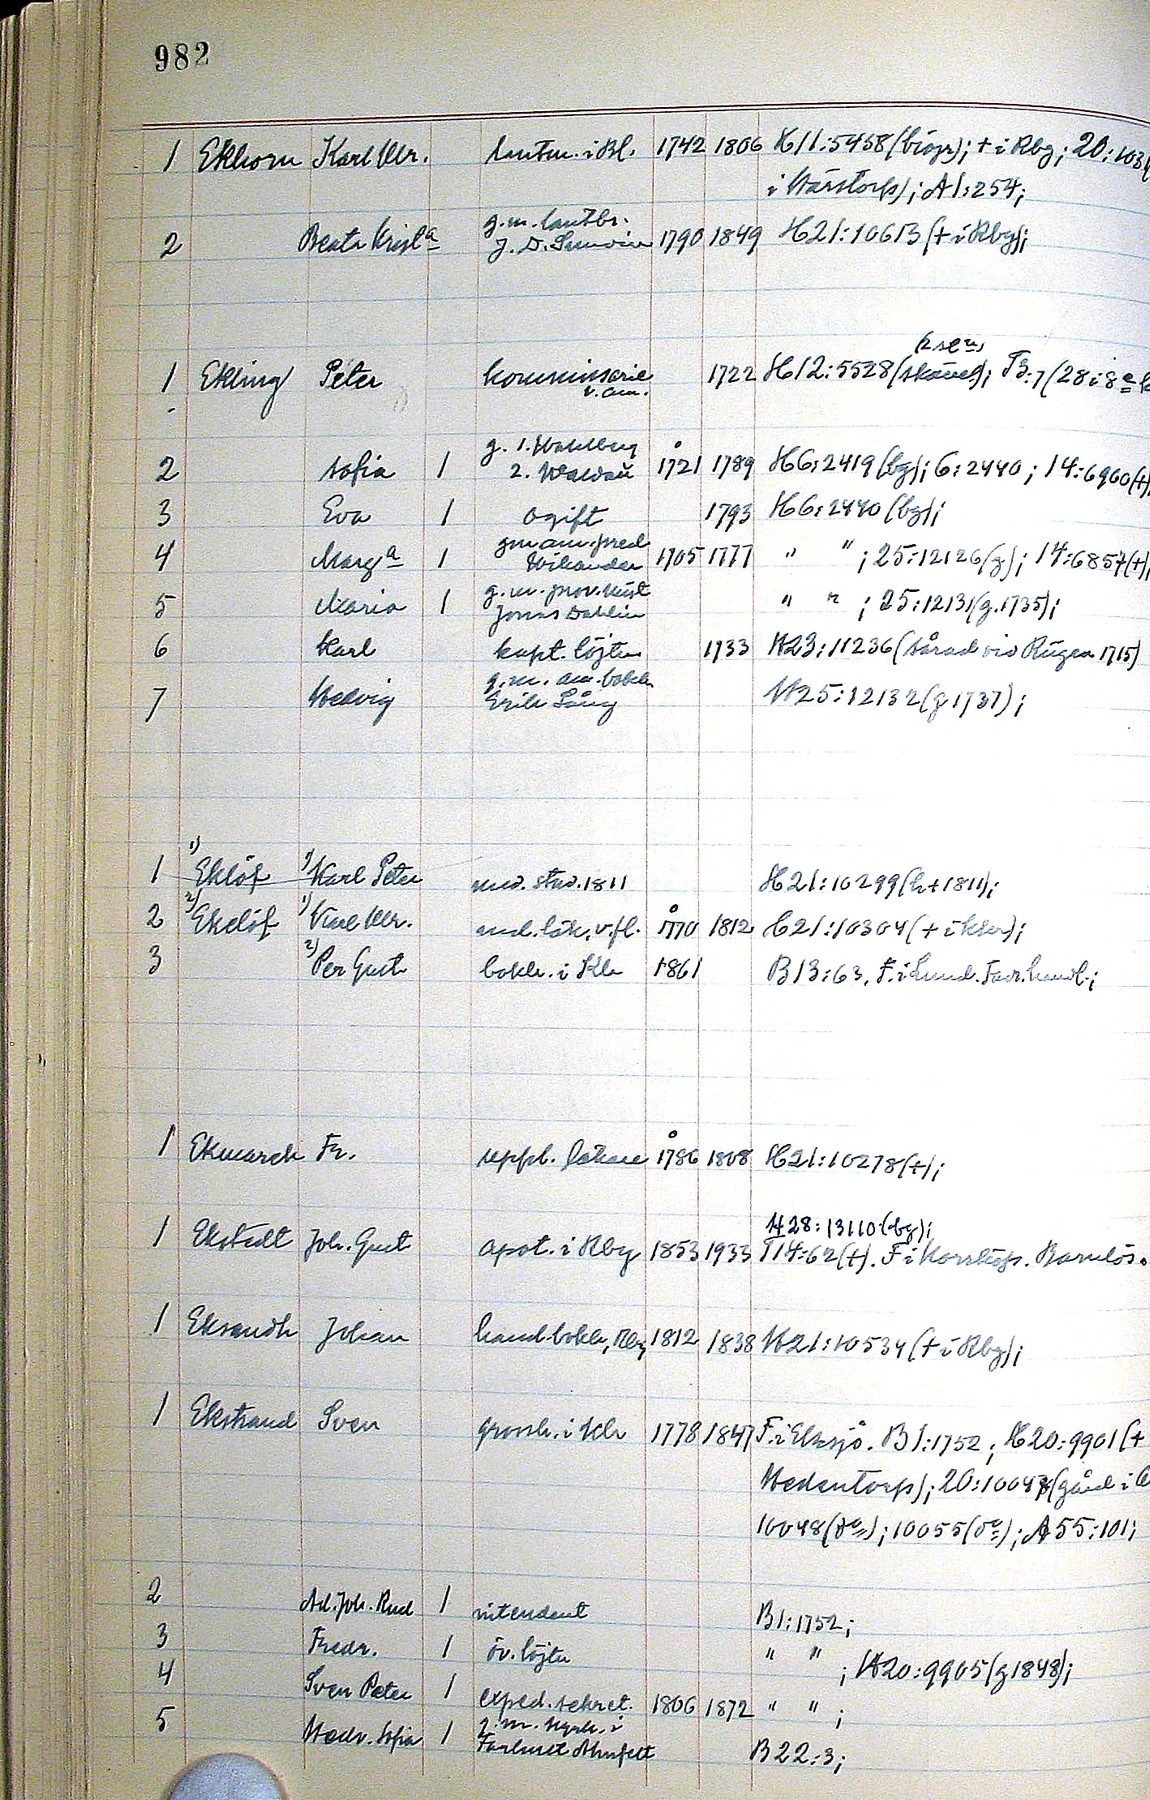 982
1 Ekhorn Karl Ulr. lantm. i Bl. 1742 1806 H11:5458 (biogr); + i Kbg; 20:103
i Wärstorp); A1:254;
g.m. lantbr.
2 Beata Krist<u>a</u> J. D. 1790 1849 H21:10613 (+ i Kbg);
(2 se
1 Ekling Peter kommissarie 1722 H12:5528 ( ); B:7 (28 i 8e
v. am.
g. 1. Wahlberg
2 Sofia 1 2. Waldau 1721 1789 H6:2419 (bg); 6:2440; 14:6960 (+)
3 Eva 1 ogift 1793 H6:2440 (bg);
gm am. pred
4 Marga 1 Wikander 1705 1777 " "; 25:12126 (g); 14:6857 (+)
g. m. prov. mäst
5 Maria 1 Jonas Dahlin " "; 25:12131 (g. 1735);
6 Karl kapt. löjtn 1733 H23:11236 (sårad vid Rügen 1715)
g. m. am. bokh
7 Hedvig Erik Lång H25:12132 (g 1737);
1 1) Eklöf 1) Karl Peter med. stud. 1811 H21:10299 (h + 1811);
2 2) Ekelöf 1) Karl Ulr. und. läk. v. fl. 1770 1812 H21:10304 (+ i Khr);
3 2) Per Gust bokh. i Kla 1861 B13:63. F. i Lund. Fadr. handl.;
1 Ekmarck Fr. uppb. läkare 1786 1808 H21:10278 (+);
H28:13110 (bg);
1 Ekstedt Joh. Gust apot. i Kbg 1853 1933 T14:62 (+). F i Norrköp. Barnlös.
1 Eksandh Johan hand. bokh, Kbg 1812 1838 H21:10534 (+ i Kbg);
1 Ekstrand Sven grossh. i Khr 1778 1847 F. i Eksjö. B1:1752; H20:9901 (+
Hedentorp); 20:10047 (gård i
10048 (do); 10055 (do); A55:101;
2 Ad. Joh. Rud 1 intendent B1:1752;
3 Fredr. 1 öv. löjtn " "; H20:9905 (g 1848);
4 Sven Peter 1 exped. sekret. 1806 1872 " ";
g. m. kyrkh. i
5 Hedv. Sofia 1 Farhult Ahnfelt B22:3;